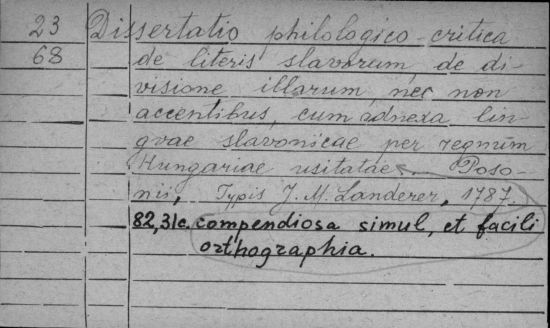 23 Dissertatio philologico-critica
68 de literis slavorum, de di-
visione illarum, nec non
accentibus, cum adnexa, lin-
gvae slavonicae per regnum
Hungariae usitatae. Poso-
nii, Typis J. M. Landerer, 1787.
82,31c. compendiosa simul, et facili
orthographia.